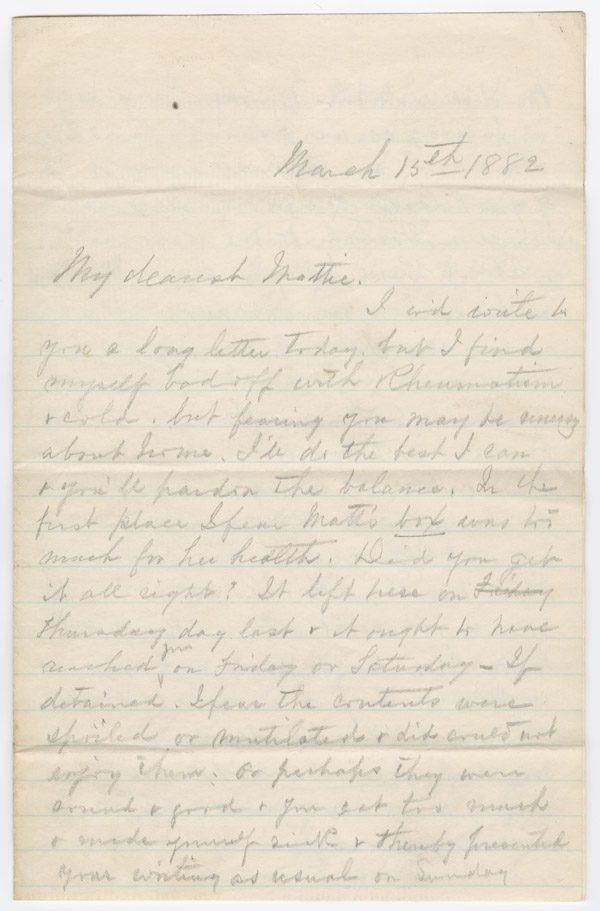 March 15th 1882
My dearest Mattie.
I w'd write to
you a long letter today. but I find
myself bad off with Rheumatism
& cold. but fearing you may be uneasy
about home. I'll do the best I can
& you'll pardon the balance. In the
first place I fear Matt's box was too
much for her health. Did you get
it all right? It left here on Friday
Thursday day last & it ought to have
reached you on Friday or Saturday - If
detained. I fear the contents were
spoiled or mutilated & did could not
enjoy them. Or perhaps they were
sound & good & you eat too much
& made yourself sick & thereby prevented
your writing as usual on Sunday